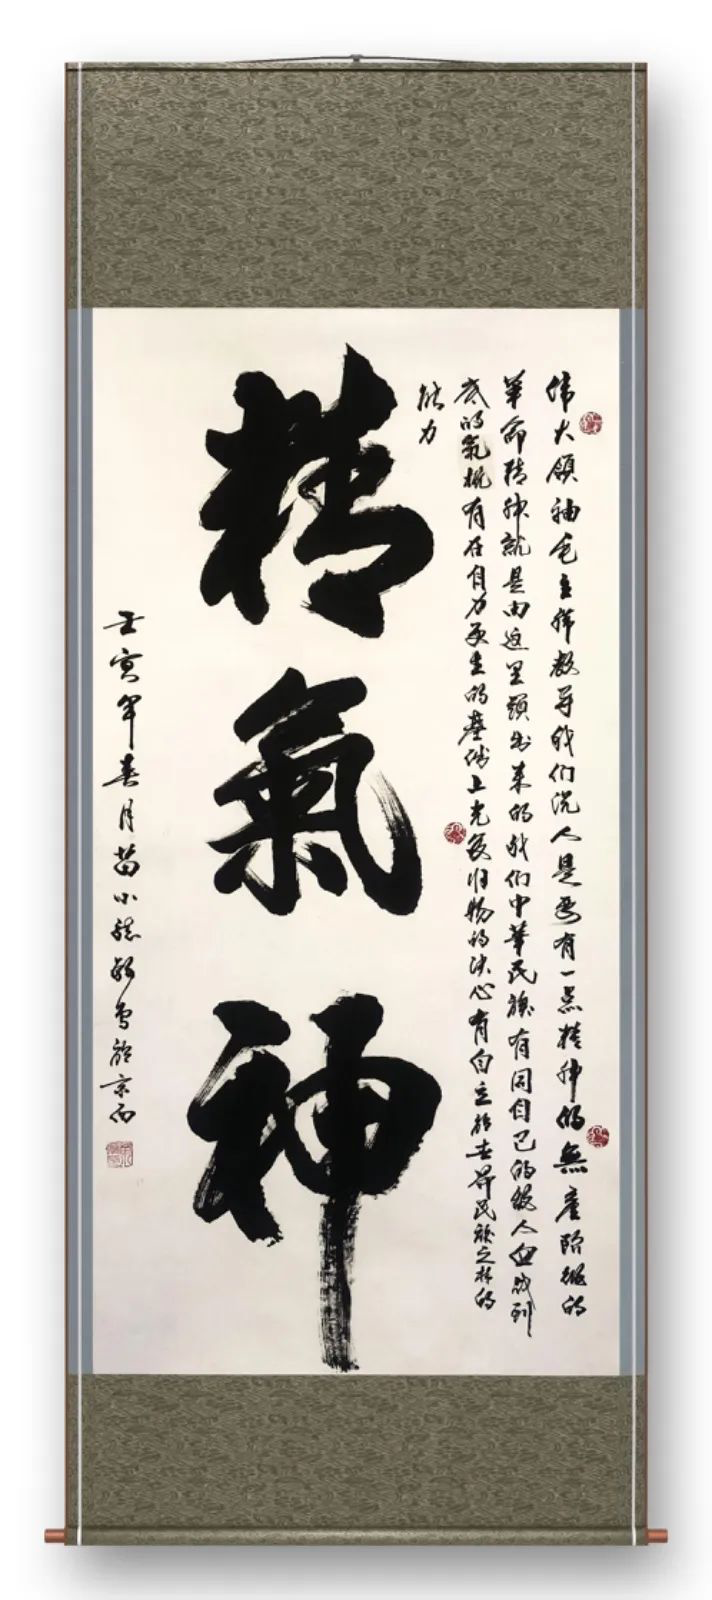 伟大领袖毛主席教导我们说人是要有一点精神的無产阶级的
革命精神就是由这里頭出来的我们中華民族有同自己的敌人血战到
底的氣概有在自力更生的基础上光复旧物的决心有自立於世界民族之林的
能力
精氣神
壬寅年春月苗小
敬書於京西